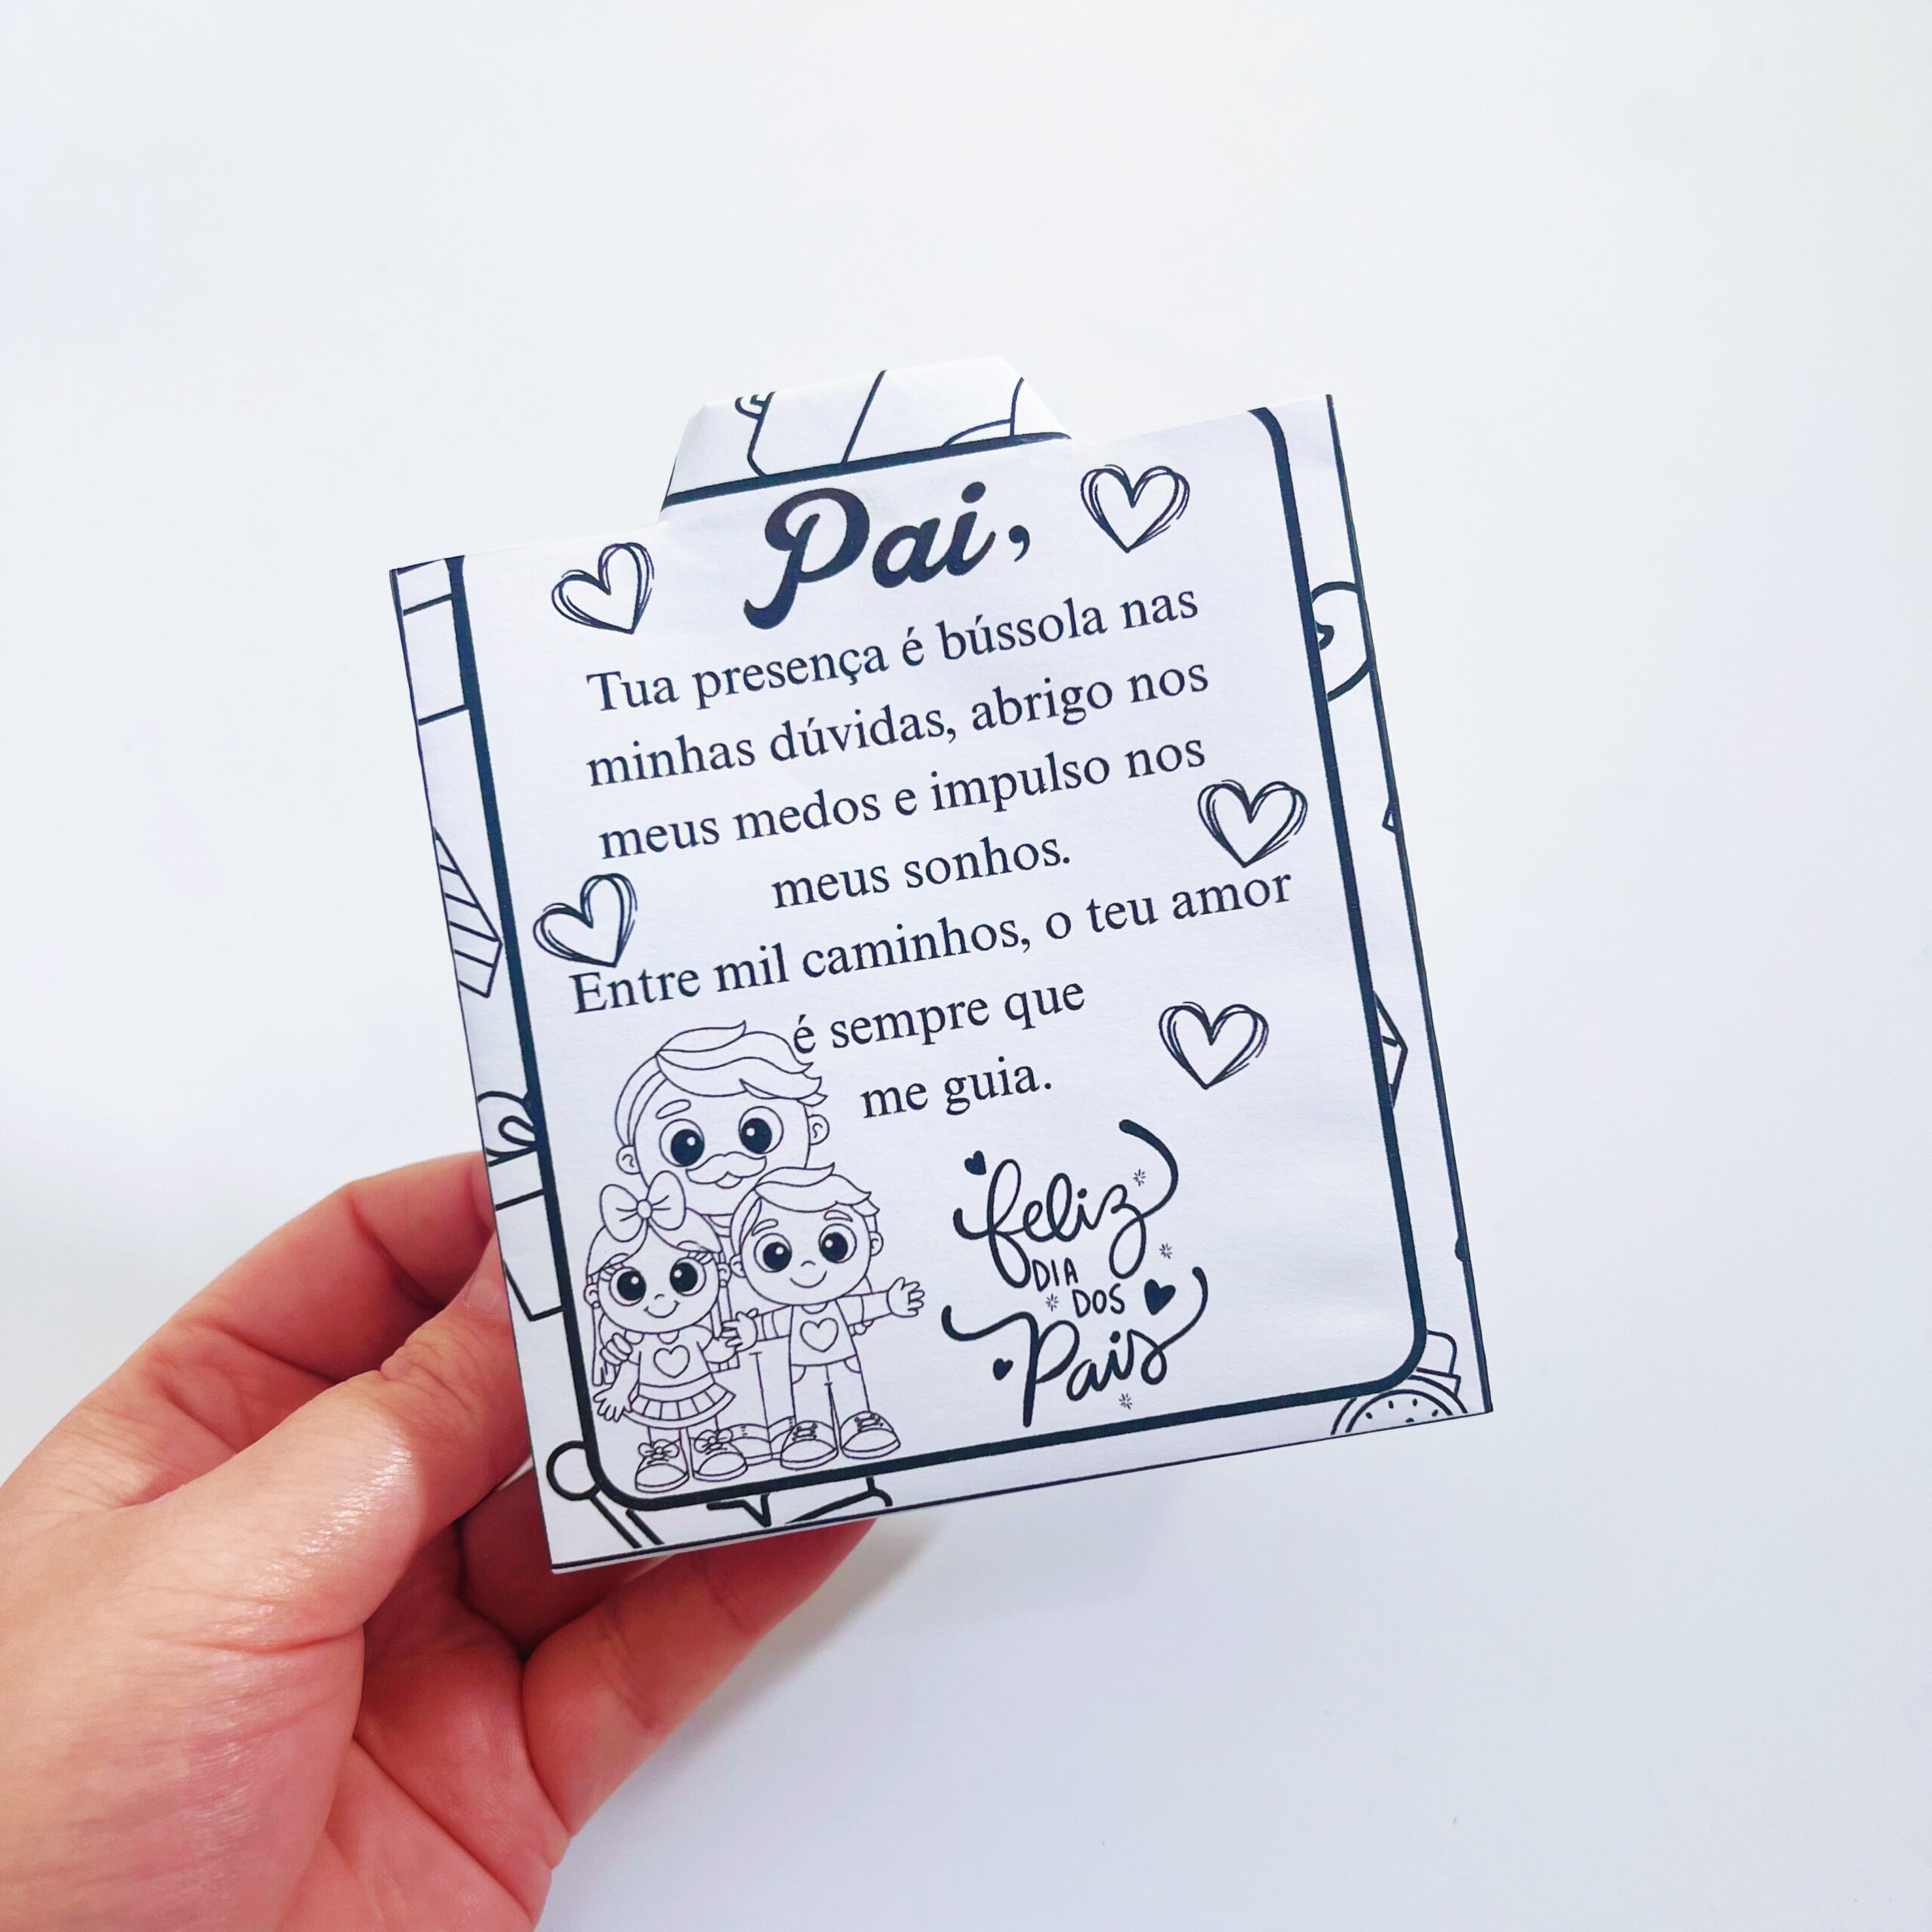 Pai,
Tua presença é bússola nas
minhas dúvidas, abrigo nos
meus medos e impulso nos
meus sonhos.
Entre mil caminhos, o teu amor
é sempre que
me guia.
feliz
DIA
DOS
Pais